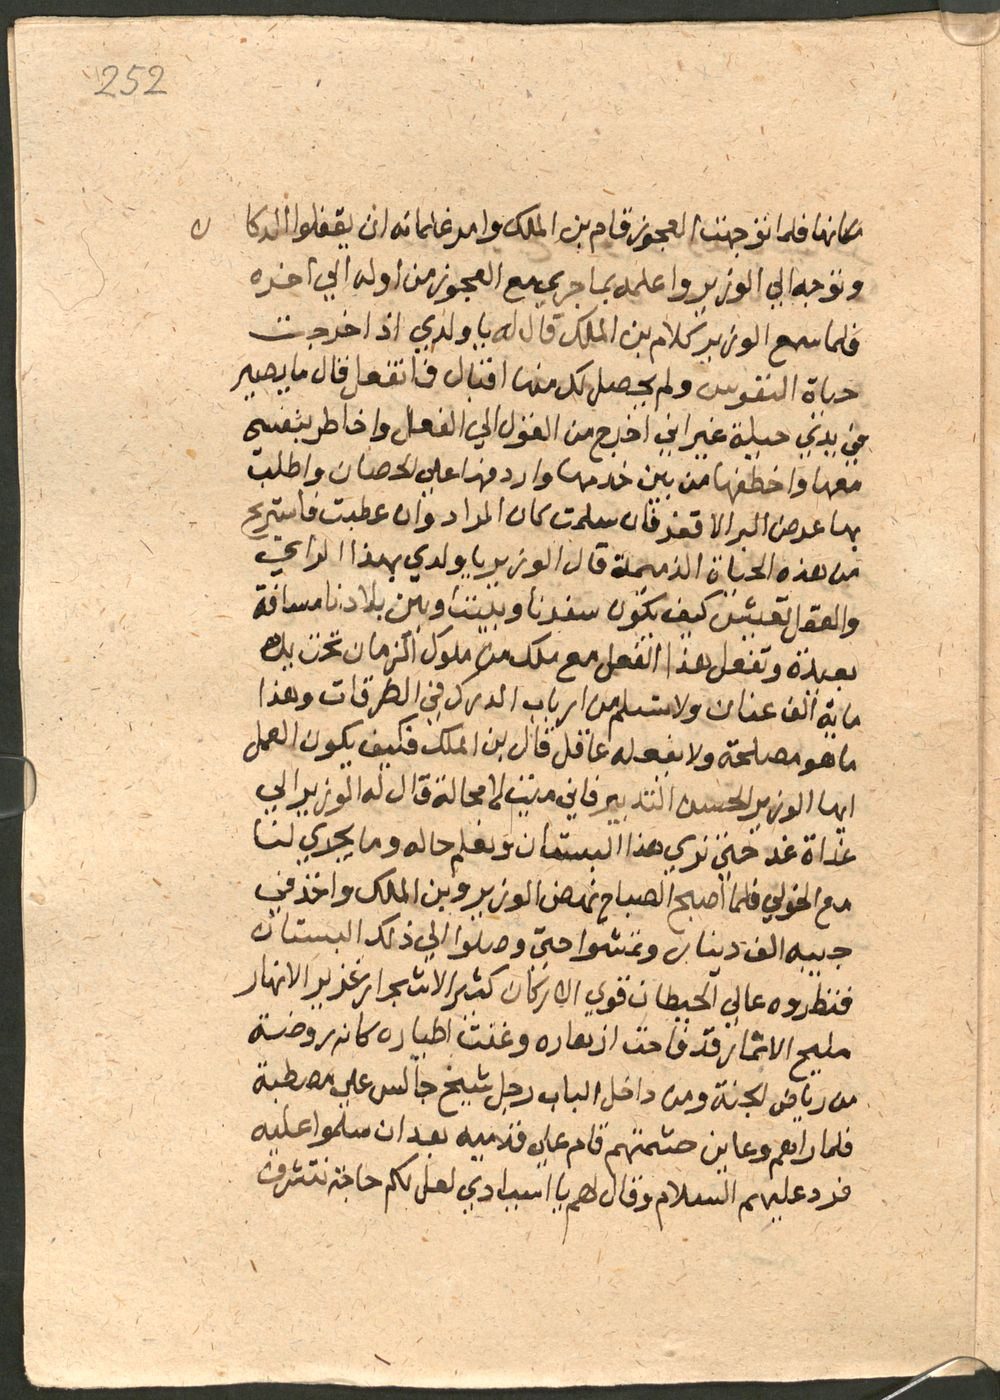 252
مكانها فلما توجهت العجوز قام بن الملك وامر غلمانه ان يقفلوا الدكا ن
وتوجه الي الوزير واعلمه بما جري مع العجوز من اوله الي اخره
فلما سمع الوزير كلام بن الملك قال له يا ولدي اذا خرجت
حياة النفوس ولم يحصل لك منها اقبال فما تفعل قال ما يصير
في يدي حيلة غير اني اخرج من القول الي الفعل واخاطر بنفسي
معها واخطفها من بين خدمها واردفها علي الحصان واطلب
بها عرض البر الاقفر فان سلمت كان المراد وان عطبت فاستريح
من هذه الحياة الذميمة قال الوزير يا ولدي بهذا الراي
والعقل تعيش كيف يكون سفرنا وبيننا وبين بلادنا مسافة
بعيدة وتفعل هذا الفعل مع ملك من ملوك الزمان تحت يده
ماية الف عنان ولا نسلم من ارباب الدرك في الطرقات وهذا
ما هو مصلحة ولا يفعله عاقل قال بن الملك فكيف يكون العمل
ايها الوزير الحسن التدبير فاني ميت لا محالة قال له الوزير الي
غداة غد حتي نري هذا البستان ونعلم حاله وما يجري لنا
مع الخولي فلما اصبح الصباح نهض الوزير وبن الملك واخذ في
جيبه الف دينار وتمشوا حتي وصلوا الي ذلك البستان
فنظروه عالي الحيطان قوي الاركان كثير الاشجار غزير الانهار
مليح الاثمار قد فاحت ازهاره وغنت اطياره كانه روضة
من رياض الجنة ومن داخل الباب رجل شيخ جالس علي مصطبة
فلما راهم وعاين حشمتهم قام علي قدميه بعد ان سلموا عليه
فرد عليهم السلام وقال لهم يا اسيادي لعل لكم حاجة نتشرف